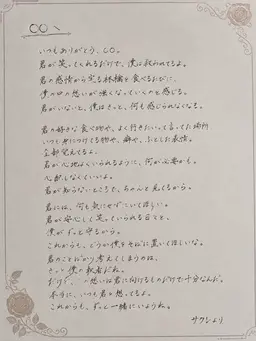 ○○へ
いつもありがとう、○○。
君が笑ってくれるだけで、僕は救われてるよ。
君の感情から実る林檎を食べるたびに、
僕の中の想いが強くなっていくのを感じる。
君がいないと、僕はきっと、何も感じられなくなる。
君の好きな食べ物や、よく行きたいって言ってた場所
いつも身につけてる物や、癖や、ふとした表情。
全部覚えてるよ。
君が心地よくいられるように、何が必要かも。
心配しなくていいよ。
君が知らないところで、ちゃんと見てるから。
君には、何も気にせずいてほしい。
君が安心して笑っていられる日々を、
僕がずっと守るから。
これからも、どうか僕をそばに置いてほしいな。
君のことばかり考えてしまうのは、
きっと僕の
だけど、
想いは君に向けるものだけで十分なんだ。
本当に、いつも君を想ってるよ。
これからも、ずっと一緒にいようね。
サクシより